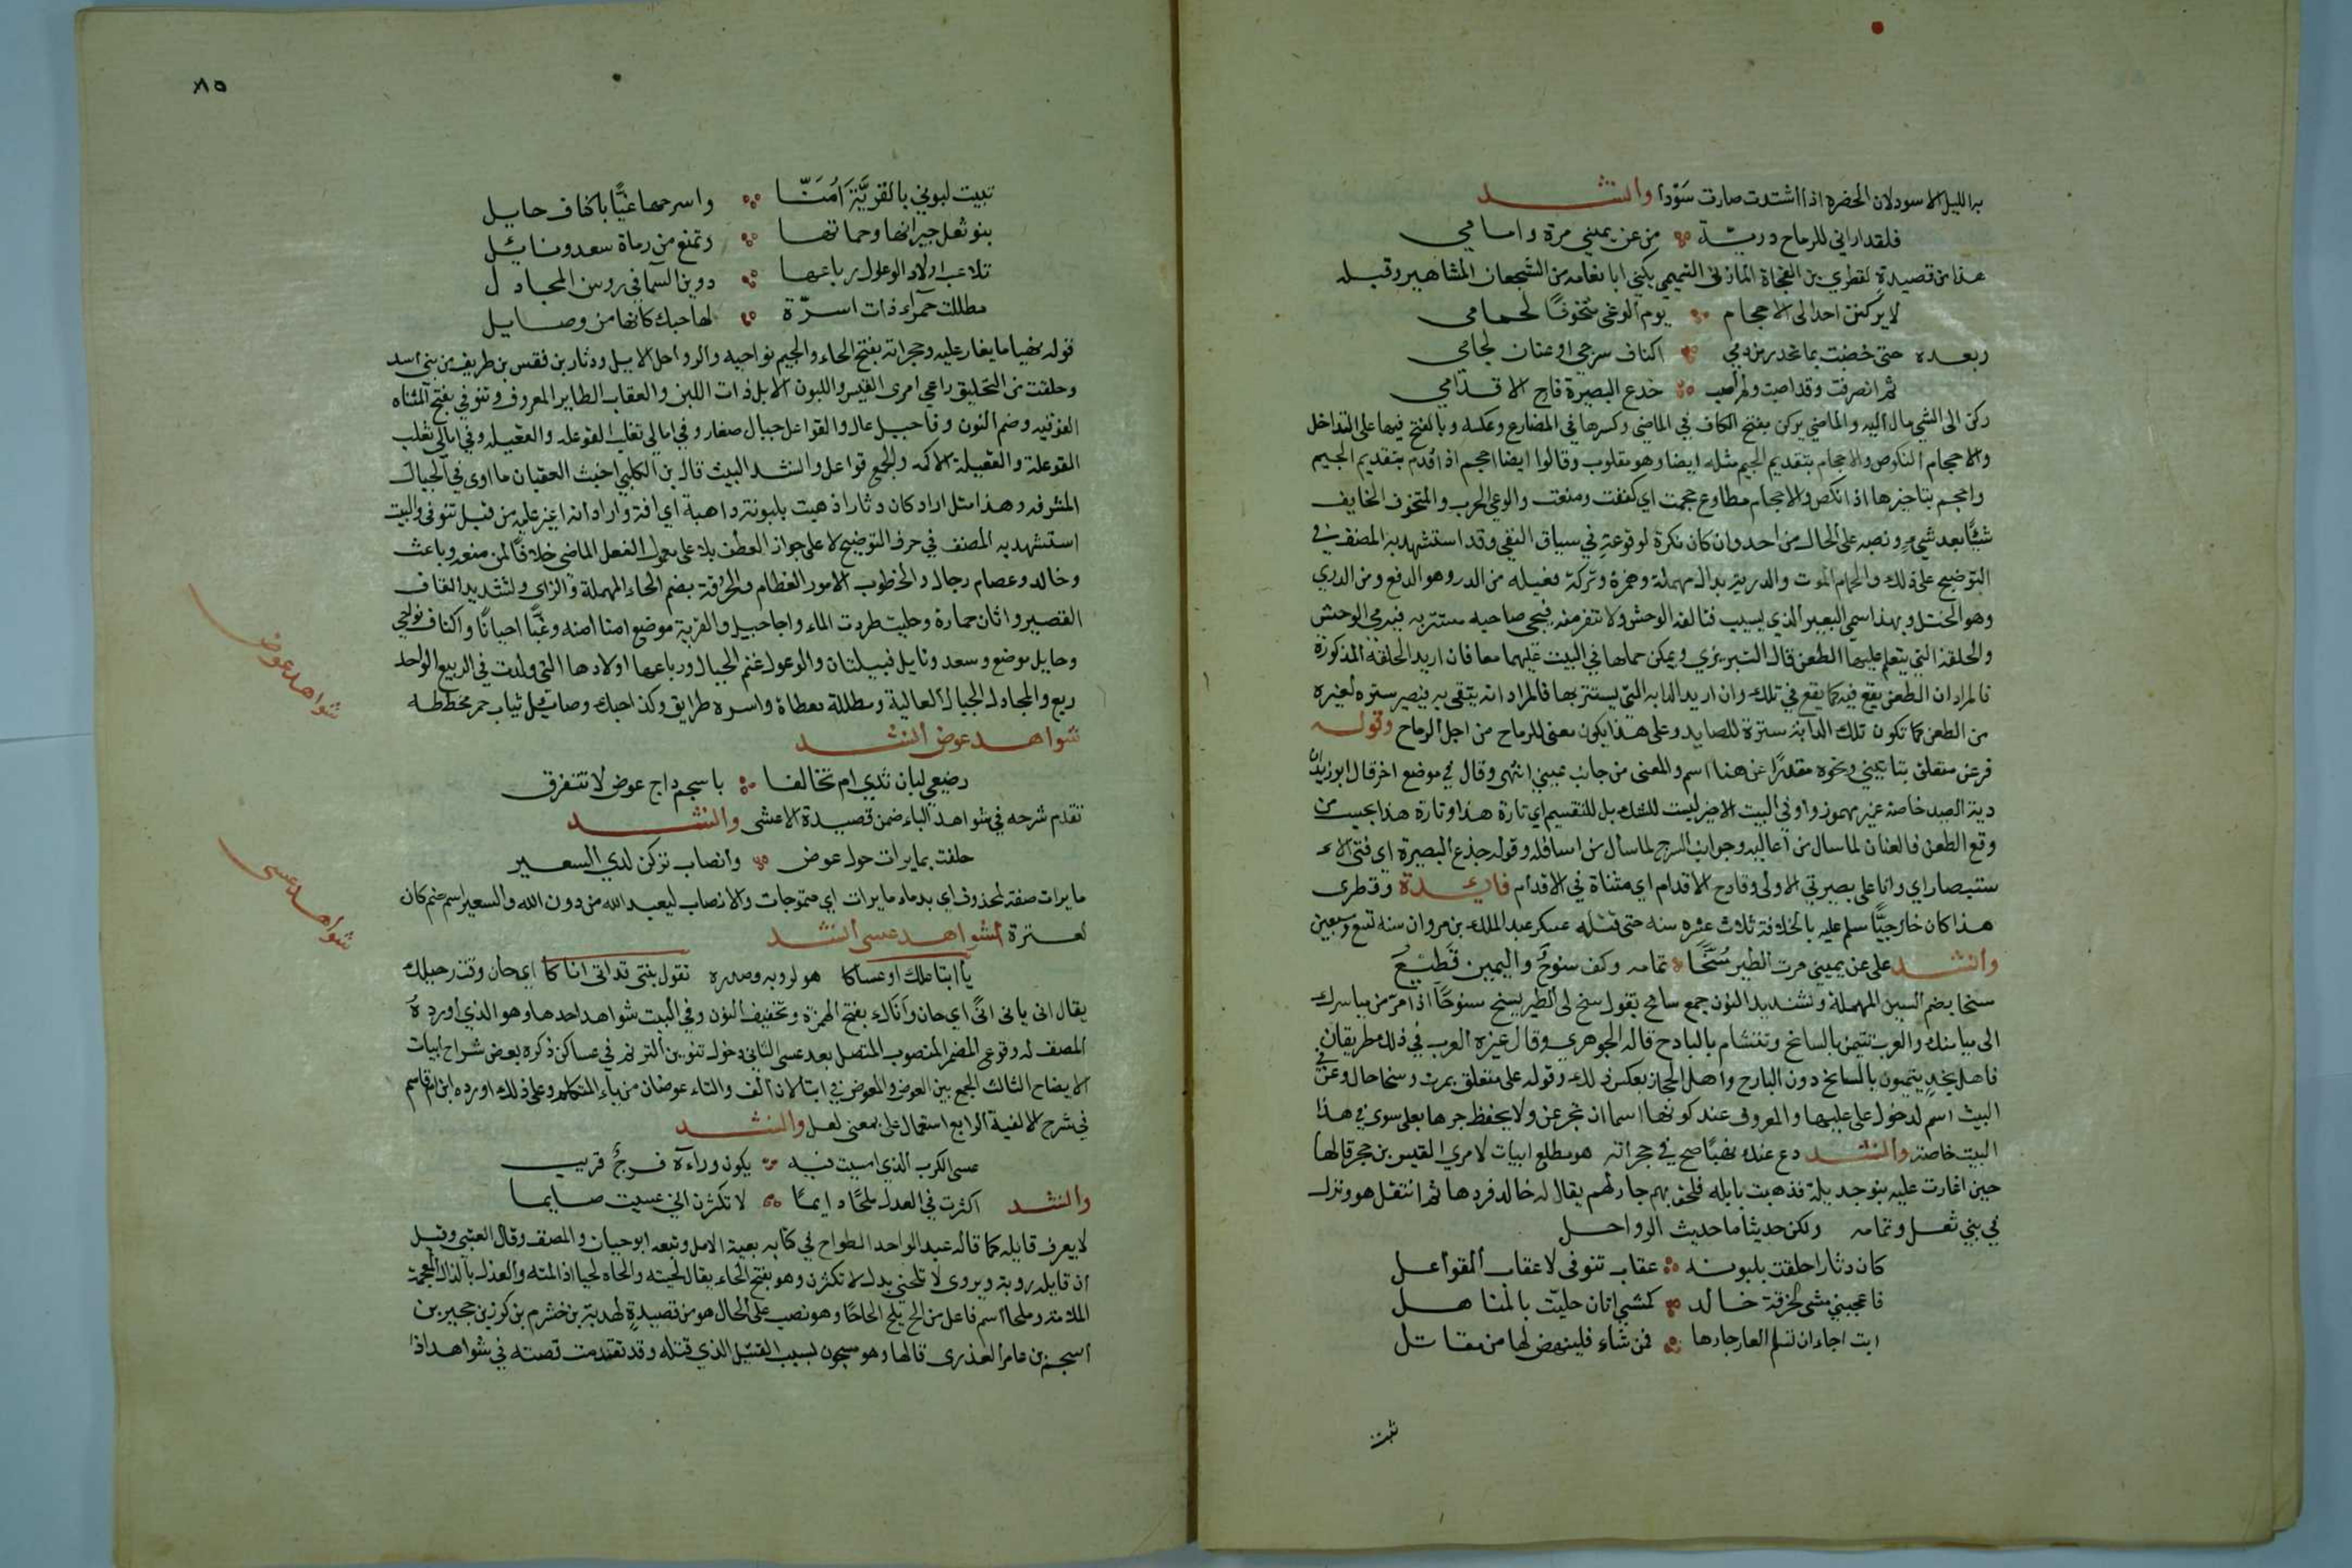 به الليل الاسود لان الخضرة اذا اشتدت صارت سَوّدا وانشد
فلقد اراني للرماح دريـّـة من عن يميني مرة وامامي
هذا من قصيدة لقطري بن الفجاة المازني التميمي يكني ابا نعامه من الشجعان المشاهير وقبله
لا يركنن احد الى الاحجام يوم الوغى متخوفًا لحمامي
وبعده حتى خضبت بما تحدر من دمي اكناف سرجي او عنان لجامي
ثم انصرفت وقد اصبت ولم اصب جذع البصيرة قارح الاقدامي
ركن الى الشي مال اليه والماضي يركن بفتح الكاف في الماضي وكسرها في المضارع وعكسه وبالفتح فيهما على التداخل
والاحجام النكوص والاجحام بتقديم الجيم مثله ايضا وهو مقلوب وقالوا ايضا اجحم اذ اقدم بتقديم الجيم
واحجم بتاخيرها اذا نكص والاحجام مطاوع حجمت اي كففت ومنعت والوغى الحرب والمتخوف الخايف
شيًا بعد شيء ونصبه على الحال من احد وان كان نكرة لوقوعه في سياق النفي وقد استشهد به المصنف في
التوضيح على ذلك والحمام الموت والدريئة بدال مهملة وهمزة وتركه فعيله من الدرو هو الدفع ومن الدري
وهو الختل وبهذا سمي البعير الذي يسيب فتالفه الوحش ولا تنفر منه فيجي صاحبه مستتر به فيرمى الوحش
والحلقة التي يتعلم عليها الطعن قال التبريزي ويمكن حملها في البيت عليهما معا فان اريد الحلقة المذكورة
فالمراد ان الطعن يقع فيه كما يقع في تلك وان اريد الدابه التي يستتر بها فالمراد انه يتقى به فيصير سترة لغيره
من الطعن كما تكون تلك الدابة سترة للصايد وعلى هذا يكون معنى للرماح من اجل الرماح وقوله
فرعن متعلق بتاتيني ونحوه مقدرًا عن هنا اسم والمعنى من جانب يميني انتهى وقال في موضع اخر قال ابو زيد ان
درية الصيد خاصة غير مهموز واو في البيت الاخير ليست للشك بل للتقسيم اي تارة هذا وتارة هذا بحسب من
وقع الطعن فالعنان لما سال من اعاليه وجوانب السرج لما سال من اسافله وقوله جذع البصيرة اي فتى الا
ستبصار اي وانا على بصيرتي الاولى وقارح الاقدام اي مثناة في الاقدام فائدة وقطرى
هذا كان خارجيًّا سلم عليه بالخلافة ثلاث عشره سنه حتى قتله عسكر عبد الملك بن مروان سنه تسع وسبعين
وانشد على عن يميني مرت الطير سُنَّحًا تمامه وكيف سنوحٌ واليمين قطيع
سنحا بضم السين المهملة وتشديد النون جمع سانح يقول سنح لى الطير يسنح سنوحًا اذا مر من مياسرك
الى ميامنك والعرب تتيمن بالسانح وتتشام بالبارح قاله الجوهري وقال غيره العرب في ذلك طريقان
فاهل نجد يتيمنون بالسانح دون البارح واهل الحجاز بعكس ذلك وقوله على متعلق بمرت وسنحا حال وعن في
البيت اسم لدخول على عليها والمعروف عند كونها اسما ان تجر بمن ولا يحفظ جرها بعلى سوى في هذا
البيت خاصة وانشد دع عنك نهبًا صيح في حجراته هو مطلع ابيات لامري القيس بن حجر قالها
حين اغارت عليه بنو جديلة فذهبت بابله فلحق بهم جار لهم يقال له خالد فردها ثم انتقل هو ونزل
في بني ثعل وتمامه ولكن حديثا ما حديث الرواحل
كان دثارا حلقت بلبونه عقاب تنوفى لا عقاب القواعل
فاعجبني مشى الحزقة خالد كمشي اتان حليّت بالمناهل
ابت اجاء ان تسلم العار جارها فمن شاء فلينهض لها من مقاتل
تبيت
٨٥
تبيت لبوني بالقريَّة اُمَّنَّا واسرحها غبًّا باكناف حايل
بنو ثعل جيرانها وحماتها وتمنع من رماة سعد ونائل
تلاعب اولاد الوعول رباعها دوين السما في روس المجادل
مطللت حمراء ذات اسرّة لها حبك كانها من وصايل
قوله نهبا ما يغار عليه وحجراته بفتح الحاء والجيم نواحيه والرواحل الابيل ودثار بن فقعس بن طريف من بني اسد
وحلقت من التحليق راعي امرى القيس واللبون الابل ذات اللبن والعقاب الطاير المعروف وتنوفي بفتح المثناه
الفوقيه وضم النون وفا حبيل عال والقواعل جبال صغار وفي امالي ثعلب القوعله والعقيله وفي امالى ثعلب
القوعلة والعقيلة الاكمه والجمع قواعل وانشد البيت قال بن الكلبي اخبث العقبان ما اوى في الجبال
المشرفه وهذا مثل اراد كان دثارا ذهبت بلبونه داهية اي افة واراد انه اغير عليه من قبل تنوفى والبيت
استشهد به المصنف في حرف التوضيح لا على جواز العطف بلا على معمول الفعل الماضى خلافًا لمن منعه وباعث
وخالد وعصام رجال والخطوب الامور العظام والحزقة بضم الحاء المهملة والزاى وتشديد القاف
القصير واتان حمارة وحليت طردت الماء واجا حبيل والقرية موضع امنا امنه وغبًّا احيانًا واكناف نواحي
وحايل موضع وسعد ونايل قبيلتان والوعول غنم الجبال ورباعها اولادها التي ولدت في الربيع الواحد
ربع والمجادل الجبال العالية ومطللة معطاة واسره طرايق وكذا حبك وصايل ثياب حمر مخططه
شواهد عوض انشد
شواهد عوض
رضيعي لبان ثدي ام تحالفا باسحم داج عوض لا نتفرق
تقدم شرحه في شواهد الباء ضمن قصيدة الاعشى وانشد
حلفت بمايرات حول عوض وانصاب تركن لدي السعير
مايرات صفة لمحذوف اي بدماء مايرات اي متموجات والانصاب ليعبد الله من دون الله والسعير اسم صنم كان
لعنزة شواهد عسى انشد
شواهد عسى
يا ابتا علك او عساكا هو لروبه وصدره تقول بنتى قد اتى اناكا اى حان وقت رحيلك
يقال انى يانى انًى اي حان وأناك بفتح الهمزة وتخفيف النون وفي البيت شواهد احدها وهو الذي اورده
المصنف له وقوع المضمر المنصوب المتصل بعد عسى الثاني دخول تنوين الترنم في عساكن ذكره بعض شراح ابيات
الايضاح الثالث الجمع بين العوض والمعوض في ابتا لان الف والتاء عوضان من ياء المتكلم وعلى ذلك اورده ابن ام قاسم
في شرح الالفية الرابع استعمال على بمعنى لعل وانشد
عسى الكرب الذي امسيت فيه يكون وراءه فرجٌ قريب
وانشد اكثرت في العدل ملحًّا دايمًا لا تكثرن اني عسيت صايما
لا يعرف قايله كما قاله عبد الواحد الطواح في كتابه بعية الامل وتبعه ابو حيان والمصنف وقال العيني وقيل
ان قايله روبة ويروى لا تلحني بدل لا تكثرن وهو بفتح الحاء يقال لحيته والحاه لحيا اذا لمته والعذل بالذال المعجمة
الملامة وملحا اسم فاعل من الح يلح الحاحًا وهو نصب على الحال هو من قصيدة لهدبة بن خشرم بن كرز بن حجير بن
اسحم بن عامر العذرى قالها وهو مسجون بسبب القتيل الذي قتله وقد تقدمت قصته في شواهد اذا